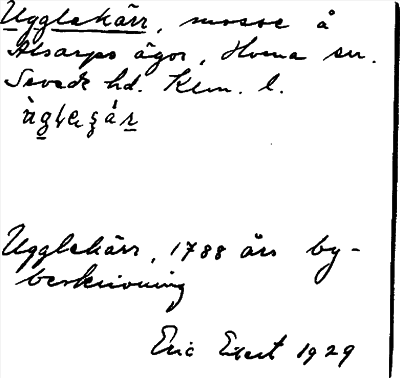 Ugglekärr, mosse å
Alsarps ägor, Hvena sn.
Sevede hd. Kalm. l.
Ugglekärr, 1788 års by-
beskrivning
Eric Exert 1929